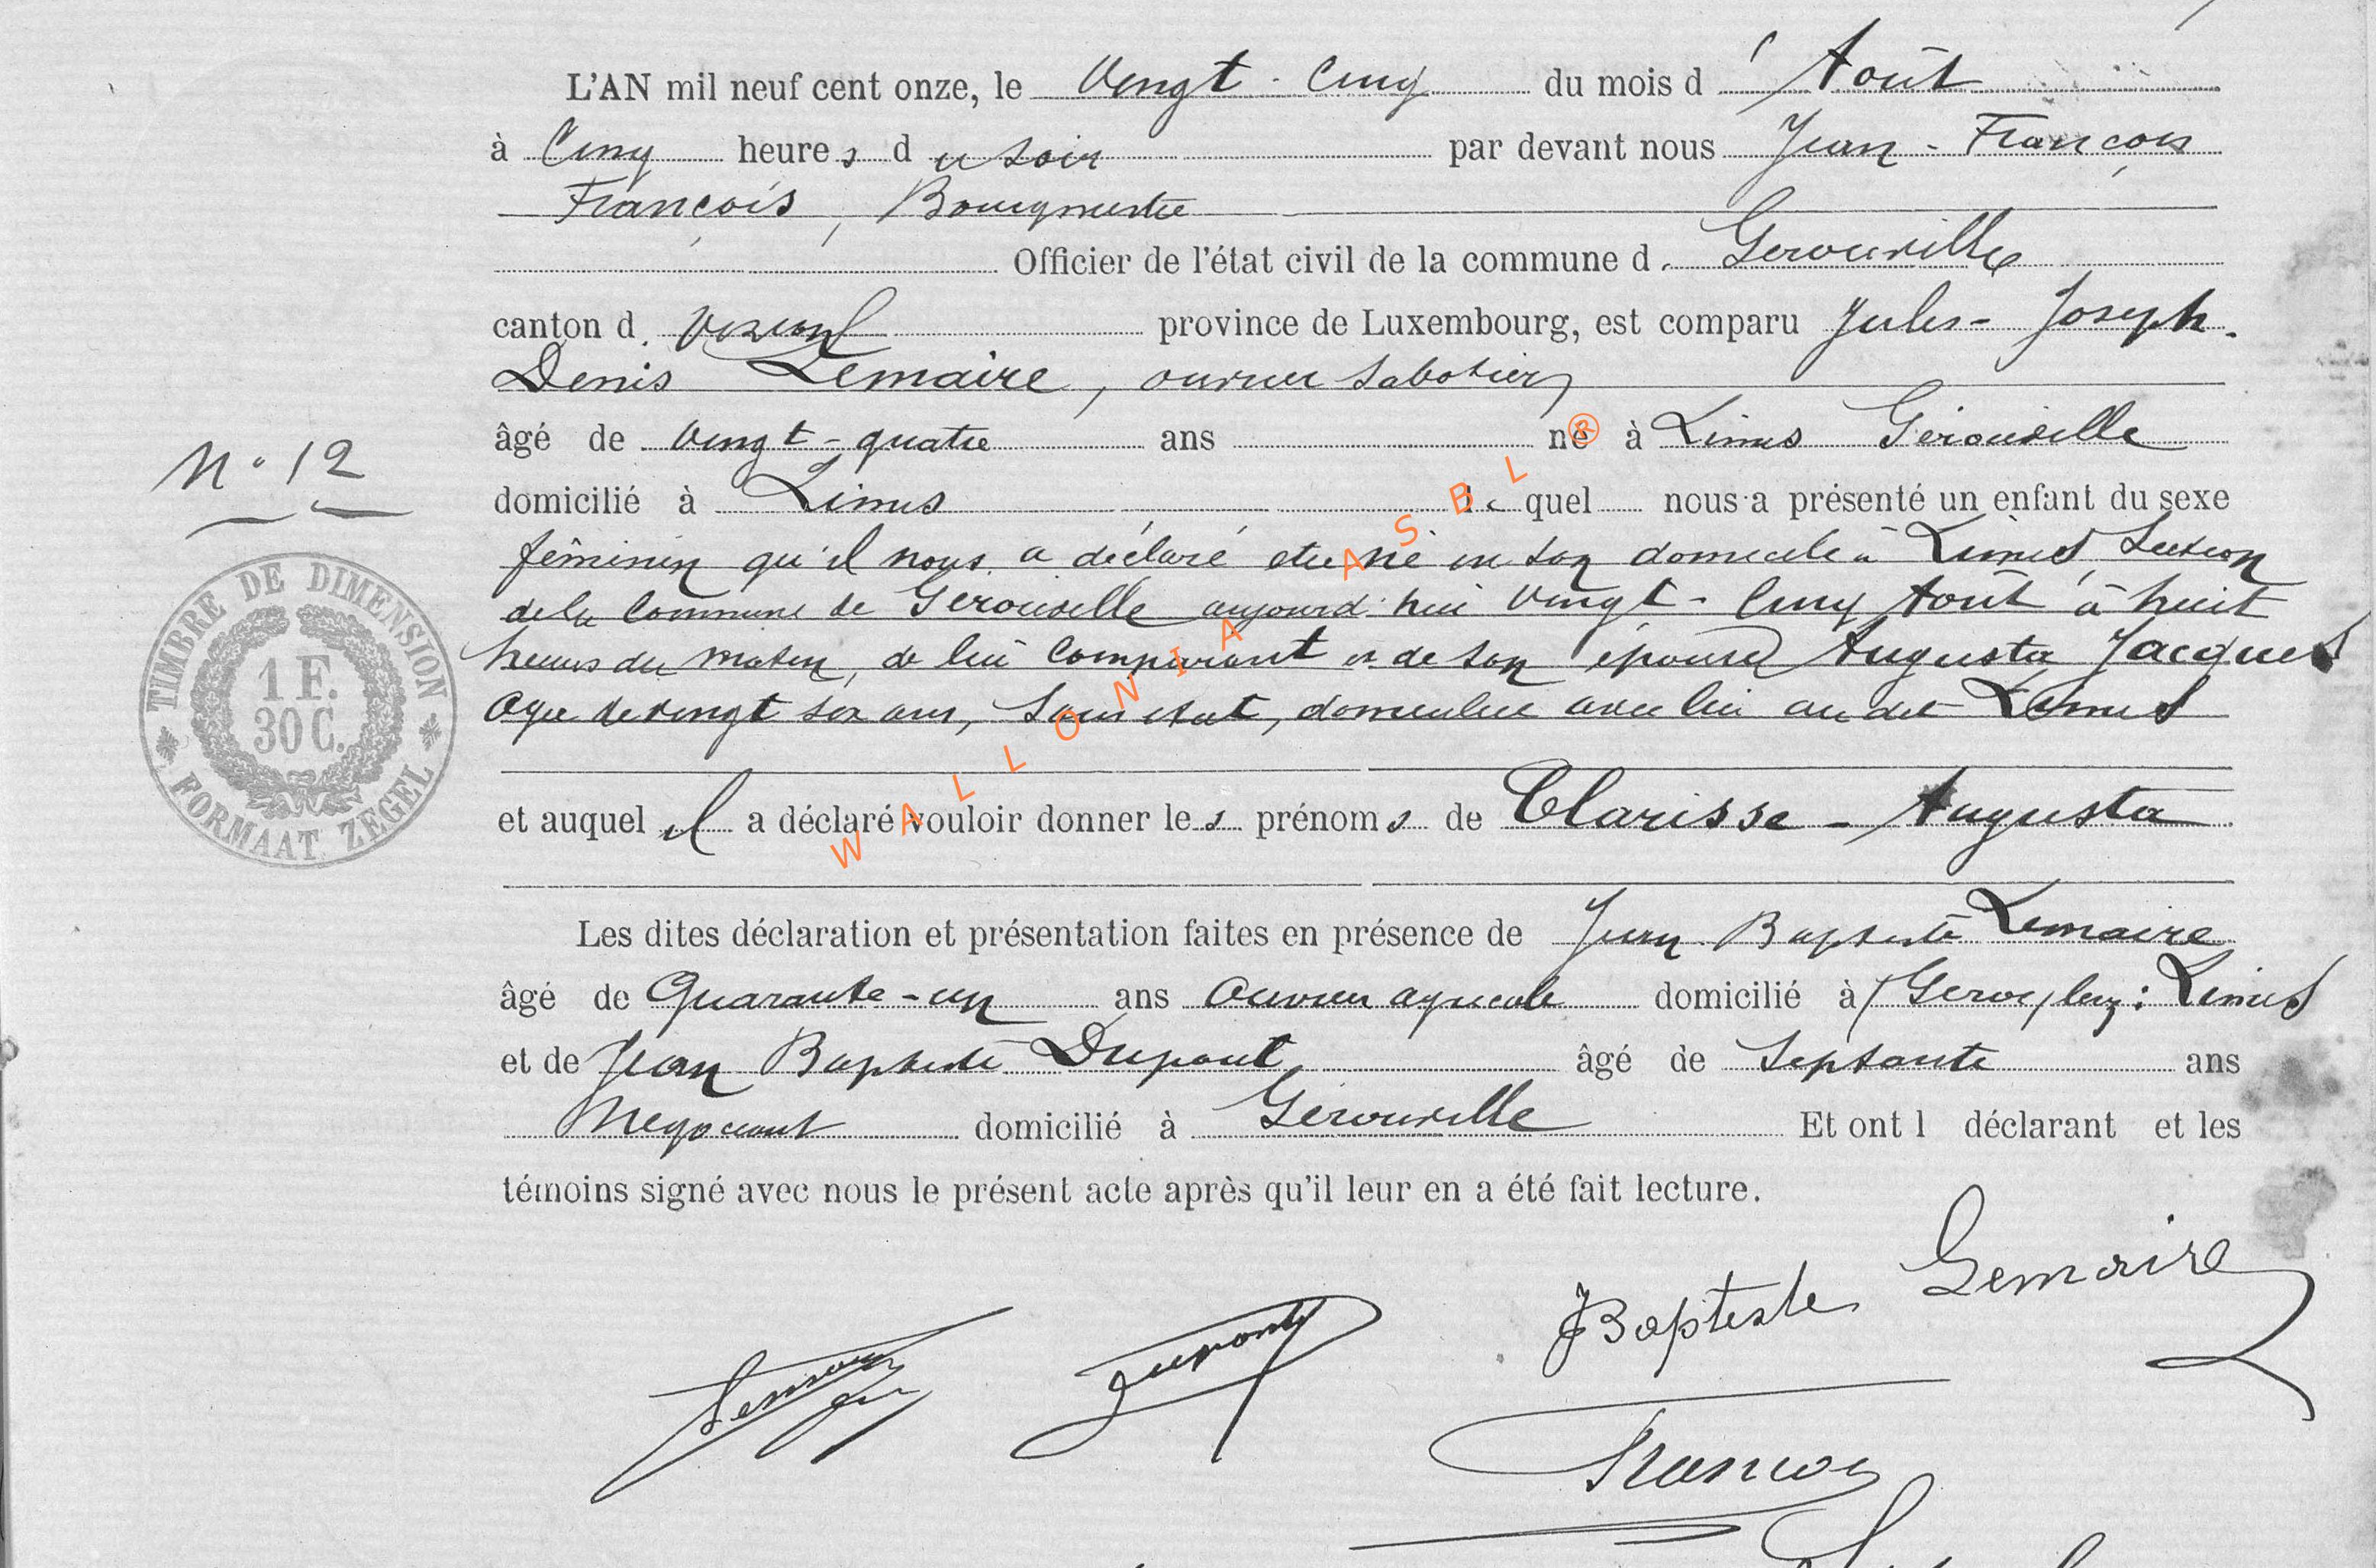 L'AN mil neuf cent onze, le Vingt-Cinq du mois d'Août
à Cinq heures du soir par devant nous Jean-François
François, Bourgmestre
Officier de l'état civil de la commune d. Gerouville
canton d. Virton province de Luxembourg, est comparu Jules-Joseph-
Denis Lemaire, ouvrier sabotier
âgé de Vingt-quatre ans né à Limes Gérouville
N° 12
domicilié à Limes le quel nous a présenté un enfant du sexe
féminin qu'il nous a déclaré etre né en son domicile à Limes, Section
de la Commune de Gérouville aujourd'hui Vingt-Cinq Août à huit
heures du matin, de lui Comparant et de son épouse Augusta Jacques
agée de vingt six ans, Sans etat, domiciliée avec lui au dit Limes
TIMBRE DE DIMENSION
1 F.
30 C.
FORMAAT ZEGEL
et auquel il a déclaré vouloir donner les prénoms de Clarisse-Augusta
Les dites déclaration et présentation faites en présence de Jean Baptiste Lemaire
âgé de Quarante-un ans Ouvrier agricole domicilié à Limes
et de Jean Baptiste Dupont âgé de Septante ans
Negociant domicilié à Gérouville Et ont l déclarant et les
témoins signé avec nous le présent acte après qu'il leur en a été fait lecture.
JBaptiste Lemaire
Dupont
François
WALLONIA ASBL ®